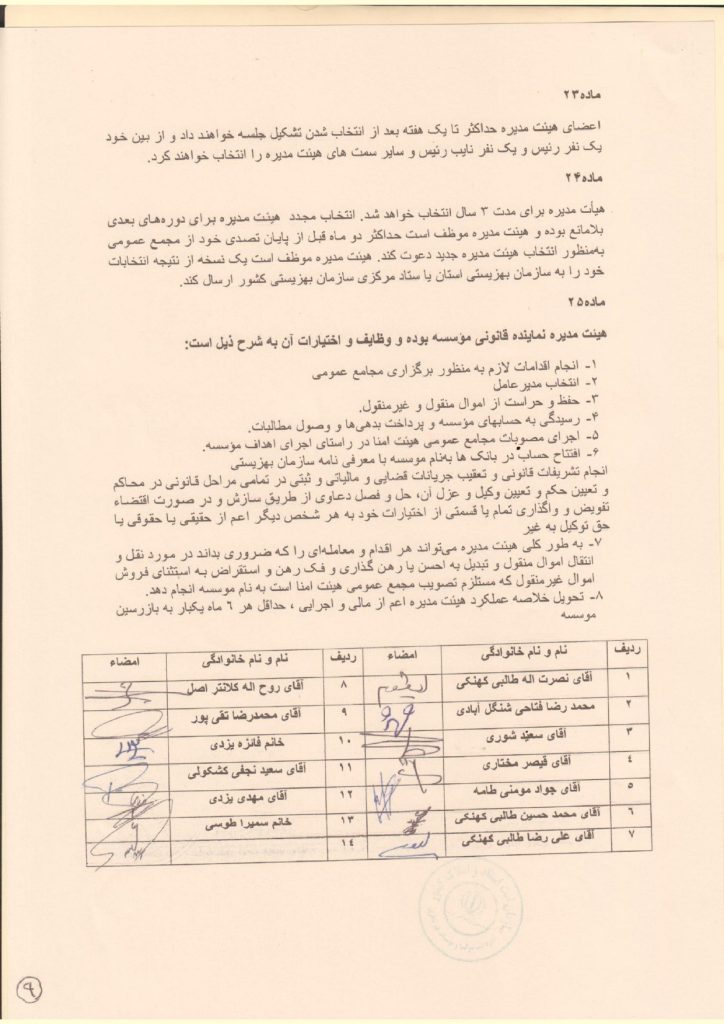 ماده۲۳
اعضای هیئت مدیره حداکثر تا یک هفته بعد از انتخاب شدن تشکیل جلسه خواهند داد و از بین خود
یک نفر رئیس و یک نفر نایب رئیس و سایر سمت های هیئت مدیره را انتخاب خواهند کرد.
ماده۲۴
هیأت مدیره برای مدت ۳ سال انتخاب خواهد شد. انتخاب مجدد هیئت مدیره برای دوره‌های بعدی
بلامانع بوده و هیئت مدیره موظف است حداکثر دو ماه قبل از پایان تصدی خود از مجمع عمومی
به‌منظور انتخاب هیئت مدیره جدید دعوت کند. هیئت مدیره موظف است یک نسخه از نتیجه انتخابات
خود را به سازمان بهزیستی استان یا ستاد مرکزی سازمان بهزیستی کشور ارسال کند.
ماده۲۵
هیئت مدیره نماینده قانونی مؤسسه بوده و وظایف و اختیارات آن به شرح ذیل است:
۱- انجام اقدامات لازم به منظور برگزاری مجامع عمومی
۲- انتخاب مدیرعامل
۳- حفظ و حراست از اموال منقول و غیرمنقول.
۴- رسیدگی به حسابهای مؤسسه و پرداخت بدهی‌ها و وصول مطالبات.
۵- اجرای مصوبات مجامع عمومی هیئت امنا در راستای اجرای اهداف مؤسسه.
۶- افتتاح حساب در بانک ها به‌نام موسسه با معرفی نامه سازمان بهزیستی
انجام تشریفات قانونی و تعقیب جریانات قضایی و مالیاتی و ثبتی در تمامی مراحل قانونی در محاکم
و تعیین حکم و تعیین وکیل و عزل آن، حل و فصل دعاوی از طریق سازش و در صورت اقتضاء
تفویض و واگذاری تمام یا قسمتی از اختیارات خود به هر شخص دیگر اعم از حقیقی یا حقوقی با
حق توکیل به غیر
۷- به طور کلی هیئت مدیره می‌تواند هر اقدام و معامله‌ای را که ضروری بداند در مورد نقل و
انتقال اموال منقول و تبدیل به احسن یا رهن گذاری و فک رهن و استقراض به استثنای فروش
اموال غیرمنقول که مستلزم تصویب مجمع عمومی هیئت امنا است به نام موسسه انجام دهد.
۸- تحویل خلاصه عملکرد هیئت مدیره اعم از مالی و اجرایی ، حداقل هر ۶ ماه یکبار به بازرسین
موسسه
ردیف نام و نام خانوادگی امضاء ردیف نام و نام خانوادگی امضاء
۱ آقای نصرت اله طالبی کهنکی ۸ آقای روح اله کلانتر اصل
۲ محمد رضا فتاحی شنگل آبادی ۹ آقای محمدرضا تقی پور
۳ آقای سعید شوری ۱۰ خانم فائزه یزدی
۴ آقای قیصر مختاری ۱۱ آقای سعید نجفی کشکولی
۵ آقای جواد مومنی طامه ۱۲ آقای مهدی یزدی
۶ آقای محمد حسین طالبی کهنکی ۱۳ خانم سمیرا طوسی
۷ آقای علی رضا طالبی کهنکی ۱۴
۹